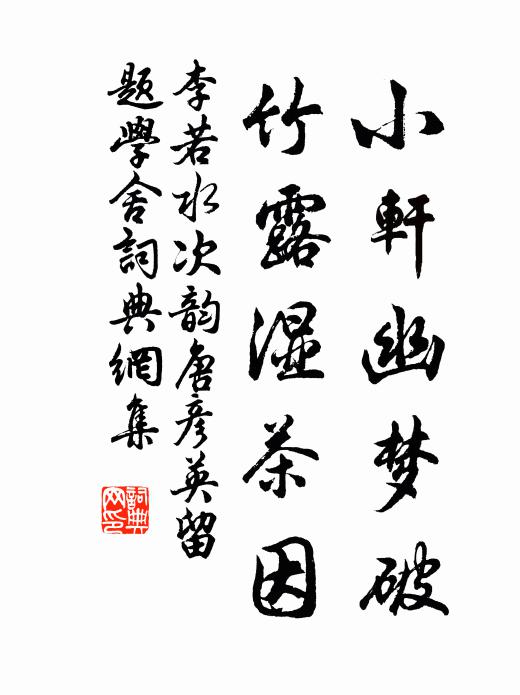 小軒幽梦破
竹露湿茶因
李若水次韵唐彦英留
題學舍詞典網集
詞典
网印